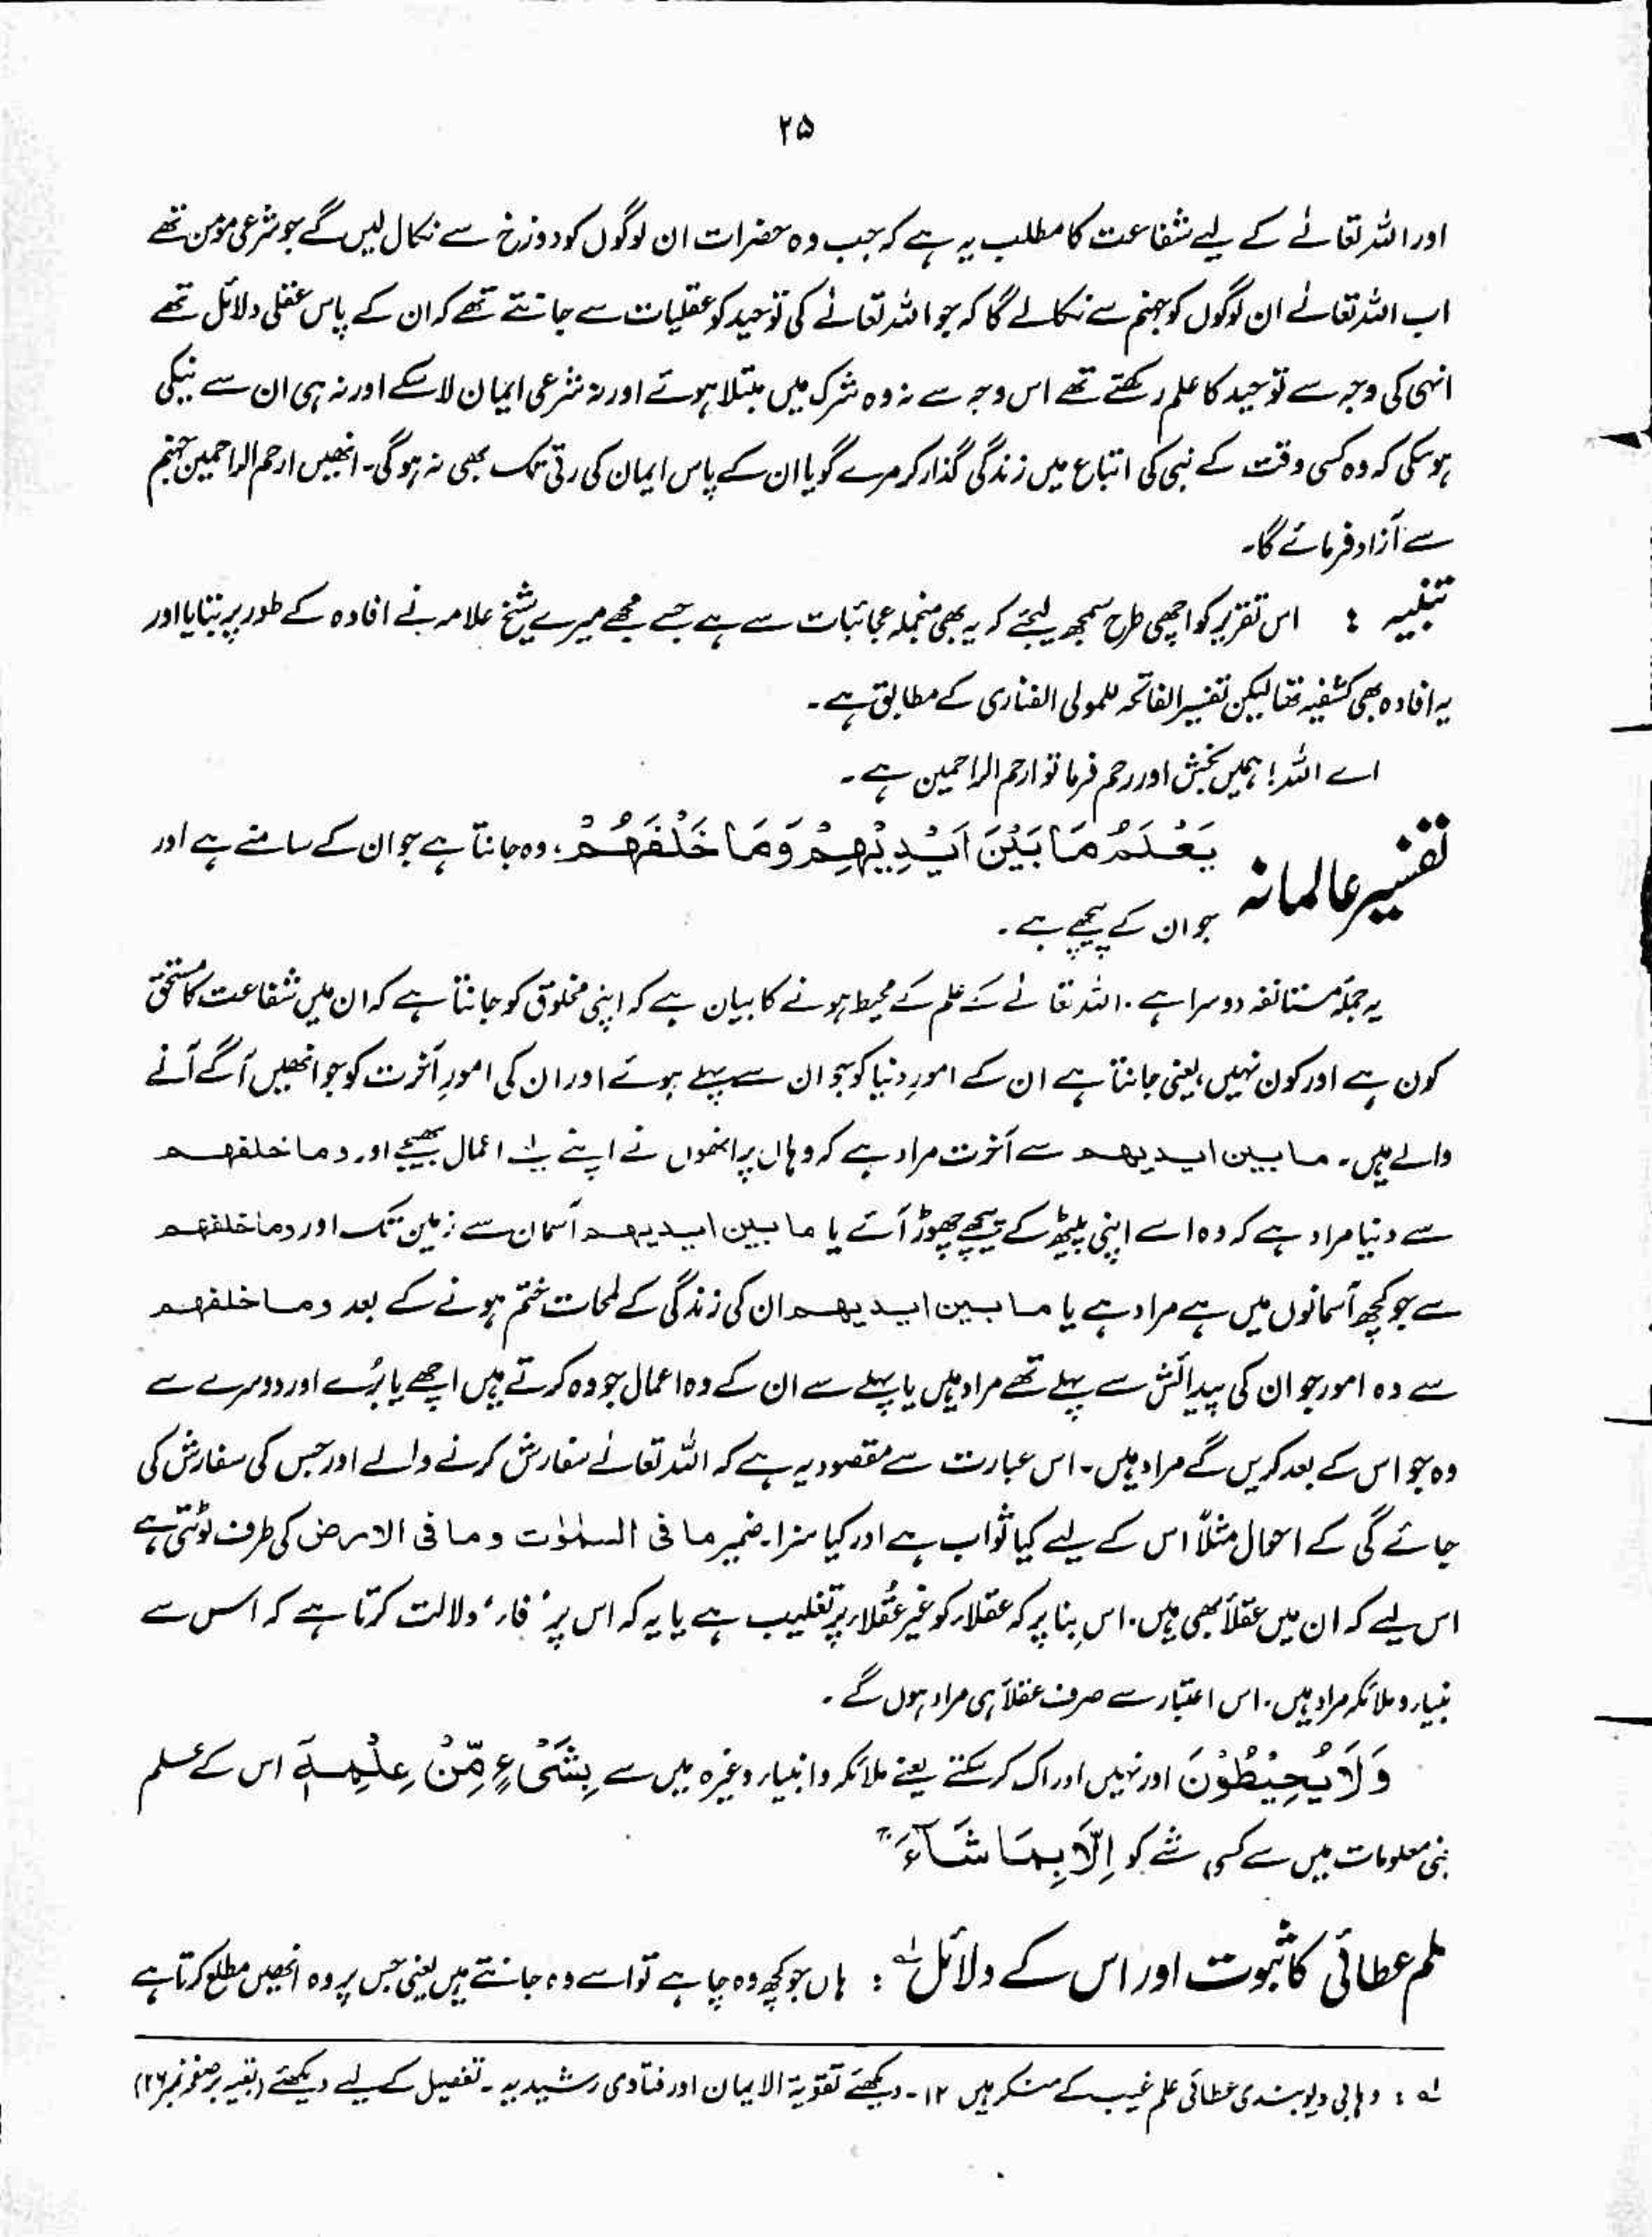 ۲۵
اور اللہ تعالےٰ کے لیے شفاعت کا مطلب یہ ہے کہ جب وہ حضرات ان لوگوں کو دوزخ سے نکال لیں گے جو شرعی مؤمن تھے
اب اللہ تعالےٰ ان لوگوں کو جہنم سے نکالے گا کہ جو اللہ تعالےٰ کی توحید کو عقلیات سے جانتے تھے کہ ان کے پاس عقلی دلائل تھے
انہی کی وجہ سے توحید کا علم رکھتے تھے اس وجہ سے نہ وہ شرک میں مبتلا ہوئے اور نہ شرعی ایمان لا سکے اور نہ ہی ان سے نیکی
ہو سکی کہ وہ کسی وقت کے نبی کی اتباع میں زندگی گذار کر مرے گویا ان کے پاس ایمان کی رتی تک بھی نہ ہو گی۔ انھیں ارحم الراحمین جہنم
سے آزاد فرمائے گا۔
تنبیہ : اس تقریر کو اچھی طرح سمجھ لیجئے کہ یہ بھی منجملہ عجائبات سے ہے جسے مجھے میرے شیخ علامہ نے افادہ کے طور پر بتایا اور
یہ افادہ بھی کشفیہ تھا لیکن تفسیر الفاتحہ للمولی الفناری کے مطابق ہے۔
اے اللہ! ہمیں بخش اور رحم فرما تو ارحم الراحمین ہے۔
تفسیر عالمانہ يَعْلَمُ مَا بَيْنَ اَيْدِيْهِمْ وَمَا خَلْفَهُمْ، وہ جانتا ہے جو ان کے سامنے ہے اور
جو ان کے پیچھے ہے۔
یہ جملہ مستانفہ دوسرا ہے۔ اللہ تعالےٰ کے علم کے محیط ہونے کا بیان ہے کہ اپنی مخلوق کو جانتا ہے کہ ان میں شفاعت کا مستحق
کون ہے اور کون نہیں، یعنی جانتا ہے ان کے امورِ دنیا کو جو ان سے پہلے ہوئے اور ان کی امورِ آخرت کو جو انھیں آگے آنے
والے ہیں۔ ما بین ایدیھم سے آخرت مراد ہے کہ وہاں پر انھوں نے اپنے اعمال بھیجے اور وما خلفھم
سے دنیا مراد ہے کہ وہ اسے اپنی پیٹھ کے پیچھے چھوڑ آئے یا ما بین ایدیھم آسمان سے زمین تک اور وما خلفھم
سے جو کچھ آسمانوں میں ہے مراد ہے یا ما بین ایدیھم ان کی زندگی کے لمحات ختم ہونے کے بعد وما خلفھم
سے وہ امور جو ان کی پیدائش سے پہلے تھے مراد ہیں یا پہلے سے ان کے وہ اعمال جو وہ کرتے ہیں اچھے یا بُرے اور دوسرے سے
وہ جو اس کے بعد کریں گے مراد ہیں۔ اس عبارت سے مقصود یہ ہے کہ اللہ تعالےٰ سفارش کرنے والے اور جس کی سفارش کی
جائے گی کے احوال مثلاً اس کے لیے کیا ثواب ہے اور کیا سزا۔ ضمیر ما فی السمٰوٰت وما فی الارض کی طرف لوٹتی ہے
اس لیے کہ ان میں عقلاً بھی ہیں۔ اس بنا پر کہ عقلاء کو غیر عُقلاء پر تغلیب ہے یا یہ کہ اس پر ’فا‘ دلالت کرتا ہے کہ اس سے
نبیاء و ملائکہ مراد ہیں۔ اس اعتبار سے صرف عقلاً ہی مراد ہوں گے۔
وَلَا يُحِيْطُوْنَ اور نہیں ادراک کر سکتے یعنے ملائکہ و انبیاء وغیرہ میں سے بِشَىْءٍ مِّنْ عِلْمِهٖٓ اس کے علم
نی معلومات میں سے کسی شے کو اِلَّا بِمَا شَآءَ
لم عطائی کا ثبوت اور اس کے دلائل لہ : ہاں جو کچھ وہ چاہے تو اسے وہ جانتے ہیں یعنی جس پر وہ انھیں مطلع کرتا ہے
لہ : وہابی دیوبندی عطائی علم غیب کے منکر ہیں ۱۲۔ دیکھئے تقویۃ الایمان اور فتاوی رشیدیہ۔ تفصیل کے لیے دیکھئے (بقیہ بر صفحہ نمبر ۲۶)